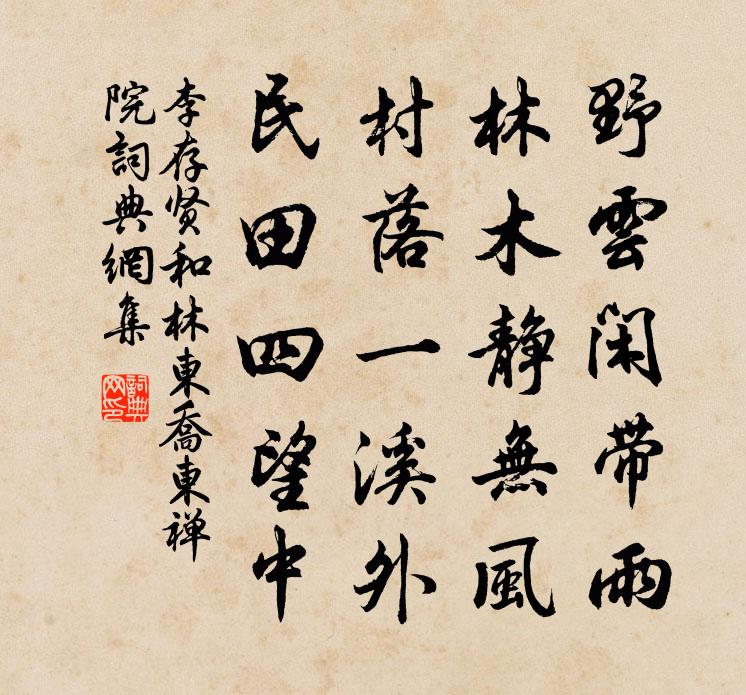 野雲閑帶雨
林木静無風
村落一溪外
民田四望中
李存贤和林東喬東禅
院詞典網集
詞典
网印